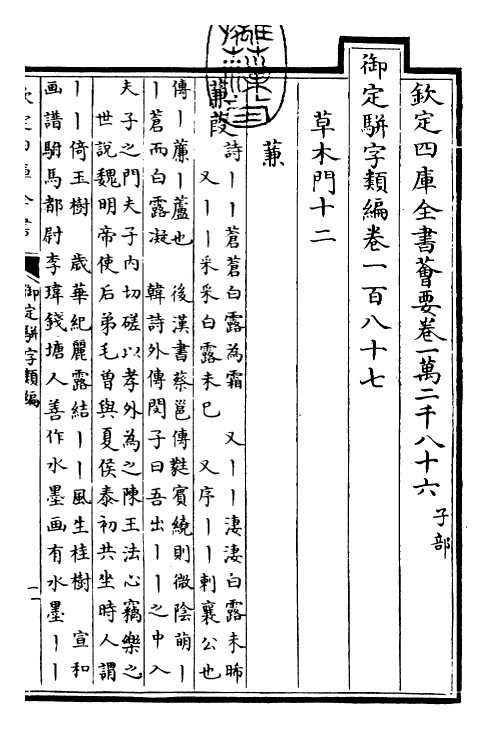 欽定四庫全書薈要卷一萬二千八十六 子部
御定駢字類編卷一百八十七
草木門十二
蒹
蒹葭 詩丨丨蒼蒼白露為霜 又丨丨淒淒白露未晞
又丨丨采采白露未已 又序丨丨刺襄公也
傳丨薕丨蘆也 後漢書蔡邕傳蕤賓繞則微陰萌丨
丨蒼而白露凝 韓詩外傳閔子曰吾出丨丨之中入
夫子之門夫子內切磋以孝外為之陳王法心竊樂之
世說魏明帝使后弟毛曾與夏侯泰初共坐時人謂
丨丨倚玉樹 歲華紀麗露結丨丨風生桂樹 宣和
畫譜駙馬都尉李瑋錢塘人善作水墨畫有水墨丨丨
御定駢字類編
一